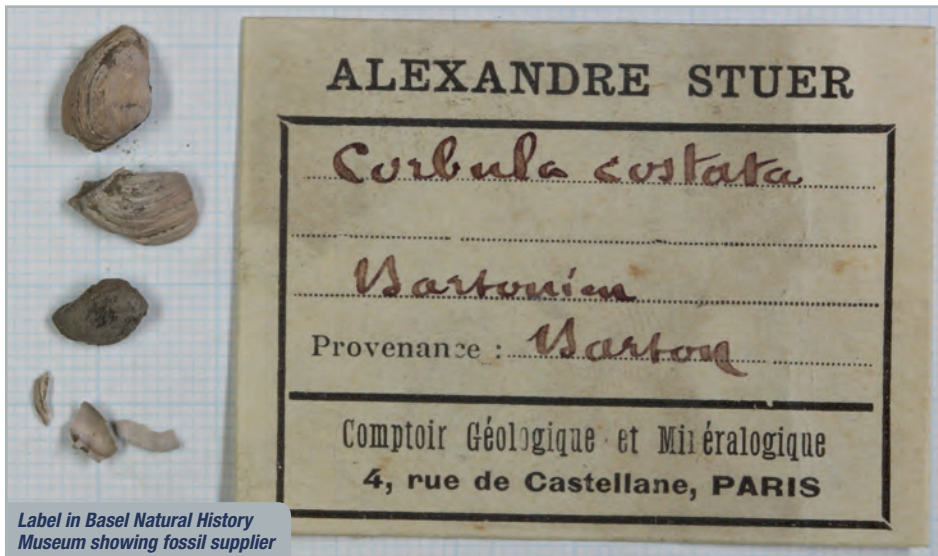 ALEXANDRE STUER
Corbula costata
Bartonien
Provenance : Barton
Comptoir Géologique et Minéralogique
4, rue de Castellane, PARIS
Label in Basel Natural History
Museum showing fossil supplier